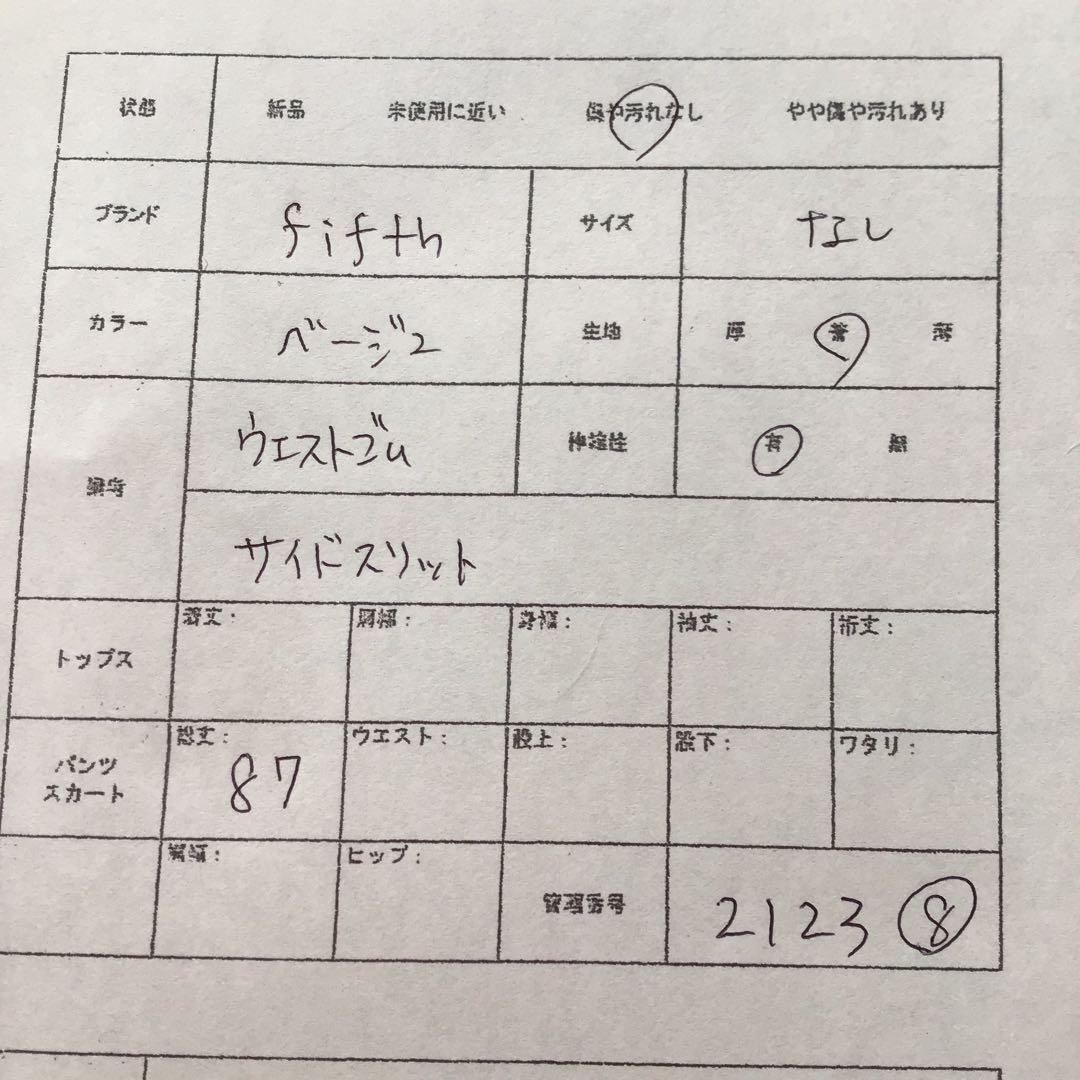 状態 新品 未使用に近い 傷や汚れなし やや傷や汚れあり
ブランド fifth サイズ なし
カラー ベージュ 生地 厚 普 薄
備考 ウエストゴム 伸縮性 有 無
サイドスリット
トップス 着丈: 肩幅: 身幅: 袖丈: 裄丈:
パンツ スカート 総丈: 87 ウエスト: 股上: 股下: ワタリ:
裾幅: ヒップ: 管理番号 2123 ⑧